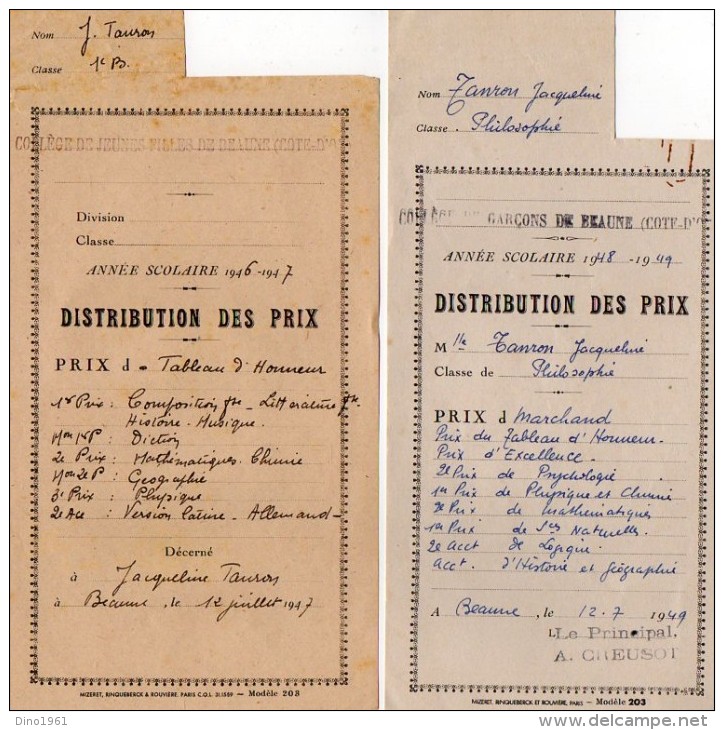 Nom J. Tauron
Classe 1e B.
COLLÈGE DE JEUNES FILLES DE BEAUNE (COTE-D'O
Division
Classe
ANNÉE SCOLAIRE 1946-1947
DISTRIBUTION DES PRIX
PRIX d e Tableau d'Honneur
1er Prix : Composition fse - Littérature fse
Histoire - Musique.
Mon 1er P : Diction
2e Prix : Mathématiques. Chimie
Mon 2e P : Géographie
3e Prix : Physique
2e Acc : Version latine - Allemand -
Décerné
à Jacqueline Tauron
à Beaune, le 12 juillet 1947
MIZERET, RINQUEBERCK & ROUVIÈRE, PARIS C.O.L. 31.1589 — Modèle 203
Nom Tanron Jacqueline
Classe . Philosophie
COLLÈGE DE GARÇONS DE BEAUNE (COTE-D'O
ANNÉE SCOLAIRE 1948 - 1949
DISTRIBUTION DES PRIX
M lle Tanron Jacqueline
Classe de Philosophie
PRIX d Marchand
Prix du Tableau d'Honneur.
Prix d'Excellence.
2e Prix de Psychologie
1er Prix de Physique et Chimie
2e Prix de mathématiques
1er Prix de Sces Naturelles.
2e acct de Logique.
acct. d'Histoire et géographie
A Beaune, le 12.7 1949
Le Principal,
A. CREUSOT
MIZERET, RINQUEBERCK ET ROUVIÈRE, PARIS — Modèle 203
Dino1961
www.delcampe.net